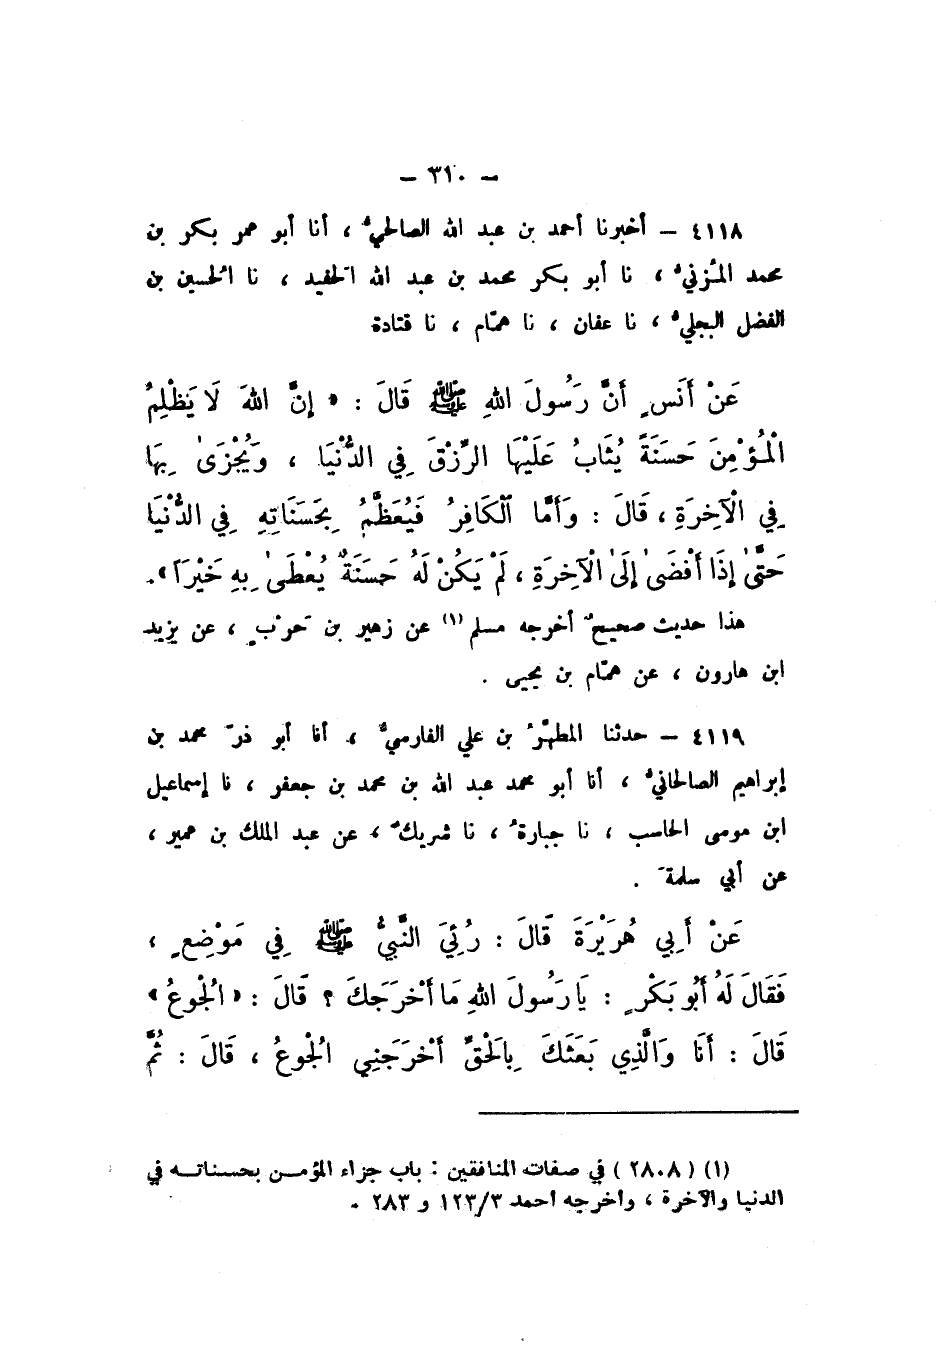 – ٣١٠ –
٤١١٨ – أخبرنا أحمد بن عبد الله الصالحيُّ ، أنا أبو عمر بكر بن
محمد المُزنيُّ ، نا أبو بكر محمد بن عبد الله الحفيد ، نا الحُسين بن
الفضل البجليُّ ، نا عفان ، نا همّام ، نا قتادة
عَنْ أَنَسٍ أَنَّ رَسُولَ اللهِ ﷺ قَالَ : « إِنَّ اللهَ لَا يَظْلِمُ
الْمُؤْمِنَ حَسَنَةً يُثَابُ عَلَيْهَا الرِّزْقَ فِي الدُّنْيَا ، وَيُجْزَىٰ بِهَا
فِي الْآخِرَةِ ، قَالَ : وَأَمَّا ٱلْكَافِرُ فَيُعَظَّمُ بِحَسَنَاتِهِ فِي الدُّنْيَا
حَتَّىٰ إِذَا أَفْضَىٰ إِلَىٰ الْآخِرَةِ ، لَمْ يَكُنْ لَهُ حَسَنَةٌ يُعْطَىٰ بِهِ خَيْرَاً » .
هذا حديث صحيحٌ أخرجه مسلم (١) عن زهير بن حَرْبٍ ، عن يزيد
ابن هارون ، عن همّام بن يحيى .
٤١١٩ – حدثنا المطهّرُ بن علي الفارسيُّ ، أنا أبو ذرّ محمد بن
إبراهيم الصالحانيُّ ، أنا أبو محمد عبد الله بن محمد بن جعفر ، نا إسماعيل
ابن موسى الحاسب ، نا جبارةُ ، نا شريكٌ ، عن عبد الملك بن عمير ،
عن أبي سلمةَ .
عَنْ أَبِي هُرَيْرَةَ قَالَ : رُئِيَ النَّبِيُّ ﷺ فِي مَوْضِعٍ ،
فَقَالَ لَهُ أَبُو بَكْرٍ : يَا رَسُولَ اللهِ مَا أَخْرَجَكَ ؟ قَالَ : « الْجُوعُ »
قَالَ : أَنَا وَالَّذِي بَعَثَكَ بِالْحَقِّ أَخْرَجَنِي الْجُوعُ ، قَالَ : ثُمَّ
(١) ( ٢٨٠٨ ) في صفات المنافقين : باب جزاء المؤمن بحسناته في
الدنيا والآخرة ، وأخرجه أحمد ١٢٣/٣ و ٢٨٣ .